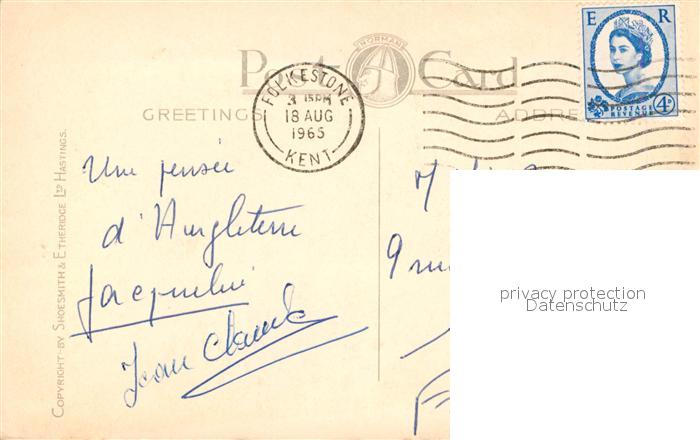 Post Card
NORMAN
GREETINGS
ADDRE
FOLKESTONE
3 15PM
18 AUG
1965
KENT
E R
POSTAGE
REVENUE
4D
COPYRIGHT-BY SHOESMITH & ETHERIDGE LTD HASTINGS.
Une pensée
d'Angleterre
Jacqueline
Jean Claude
9 rue
privacy protection
Datenschutz